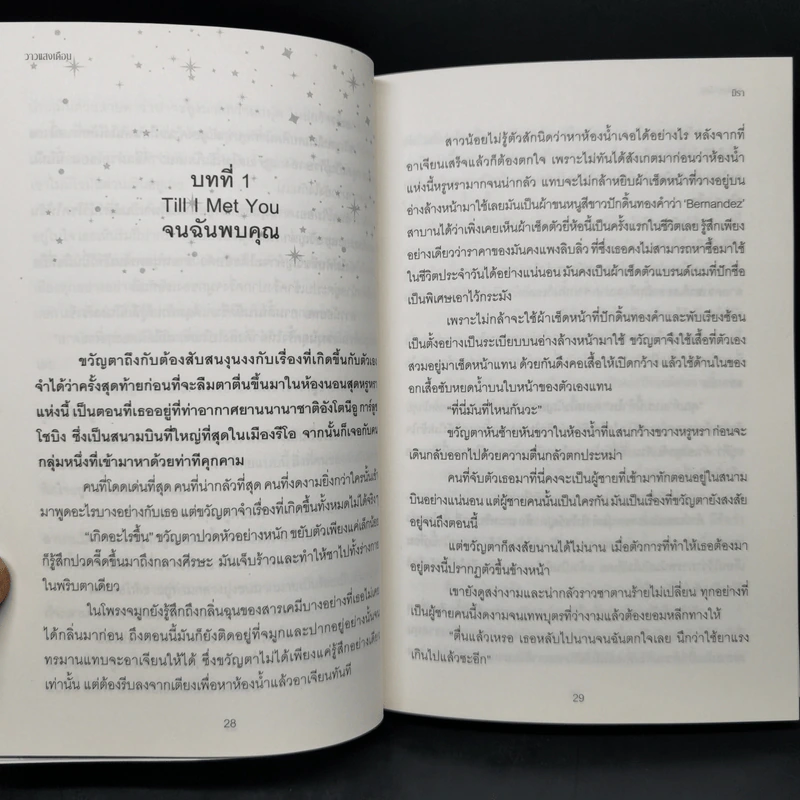 วาวแสงเดือน
บทที่ 1
Till I Met You
จนฉันพบคุณ
ขวัญตาถึงกับต้องสับสนงุนงงกับเรื่องที่เกิดขึ้นกับตัวเอง
จำได้ว่าครั้งสุดท้ายก่อนที่จะลืมตาตื่นขึ้นมาในห้องนอนสุดหรูหรา
แห่งนี้ เป็นตอนที่เธออยู่ที่ท่าอากาศยานนานาชาติอังโตนีอู การ์ลูช
โชบิง ซึ่งเป็นสนามบินที่ใหญ่ที่สุดในเมืองรีโอ จากนั้นก็เจอกับคน
กลุ่มหนึ่งที่เข้ามาหาด้วยท่าทีคุกคาม
คนที่โดดเด่นที่สุด คนที่น่ากลัวที่สุด คนที่งดงามยิ่งกว่าใครนั้นเข้า
มาพูดอะไรบางอย่างกับเธอ แต่ขวัญตาจำเรื่องที่เกิดขึ้นทั้งหมดไม่ได้จริงๆ
"เกิดอะไรขึ้น" ขวัญตาปวดหัวอย่างหนัก ขยับตัวเพียงแค่เล็กน้อย
ก็รู้สึกปวดจี๊ดขึ้นมาถึงกลางศีรษะ มันเจ็บร้าวและทำให้ชาไปทั้งร่างกาย
ในพริบตาเดียว
ในโพรงจมูกยังรู้สึกถึงกลิ่นฉุนของสารเคมีบางอย่างที่เธอไม่เคย
ได้กลิ่นมาก่อน ถึงตอนนี้มันก็ยังติดอยู่ที่จมูกและปากอยู่อย่างนั้นจน
ทรมานแทบจะอาเจียนให้ได้ ซึ่งขวัญตาไม่ได้เพียงแค่รู้สึกอย่างเดียว
เท่านั้น แต่ต้องรีบลงจากเตียงเพื่อหาห้องน้ำแล้วอาเจียนทันที
28
มิรา
สาวน้อยไม่รู้ตัวสักนิดว่าหาห้องน้ำเจอได้อย่างไร หลังจากที่
อาเจียนเสร็จแล้วก็ต้องตกใจ เพราะไม่ทันได้สังเกตมาก่อนว่าห้องน้ำ
แห่งนี้หรูหรามากจนน่ากลัว แทบจะไม่กล้าหยิบผ้าเช็ดหน้าที่วางอยู่บน
อ่างล้างหน้ามาใช้เลยมันเป็นผ้าขนหนูสีขาวปักดิ้นทองคำว่า 'Bernandez'
สาบานได้ว่าเพิ่งเคยเห็นผ้าเช็ดตัวยี่ห้อนี้เป็นครั้งแรกในชีวิตเลย รู้สึกเพียง
อย่างเดียวว่าราคาของมันคงแพงลิบลิ่ว ที่ซึ่งเธอคงไม่สามารถหาซื้อมาใช้
ในชีวิตประจำวันได้อย่างแน่นอน มันคงเป็นผ้าเช็ดตัวแบรนด์เนมที่ปักชื่อ
เป็นพิเศษเอาไว้กระมัง
เพราะไม่กล้าจะใช้ผ้าเช็ดหน้าที่ปักดิ้นทองคำและพับเรียงซ้อน
เป็นตั้งอย่างเป็นระเบียบบนอ่างล้างหน้ามาใช้ ขวัญตาจึงใช้เสื้อที่ตัวเอง
สวมอยู่มาเช็ดหน้าแทน ด้วยกันดึงคอเสื้อให้เปิดกว้าง แล้วใช้ด้านในของ
อกเสื้อซับหยดน้ำบนใบหน้าของตัวเองแทน
"ที่นี่มันที่ไหนกันวะ"
ขวัญตาหันซ้ายหันขวาในห้องน้ำที่แสนกว้างขวางหรูหรา ก่อนจะ
เดินกลับออกไปด้วยความตื่นกลัวตกประหม่า
คนที่จับตัวเธอมาที่นี่คงจะเป็นผู้ชายที่เข้ามาทักตอนอยู่ในสนาม
บินอย่างแน่นอน แต่ผู้ชายคนนั้นเป็นใครกัน มันเป็นเรื่องที่ขวัญตายังสงสัย
อยู่จนถึงตอนนี้
แต่ขวัญตาก็สงสัยนานได้ไม่นาน เมื่อตัวการที่ทำให้เธอต้องมา
อยู่ตรงนี้ปรากฏตัวขึ้นข้างหน้า
เขายังดูสง่างามและน่ากลัวราวซาตานร้ายไม่เปลี่ยน ทุกอย่างที่
เป็นผู้ชายคนนี้งดงามจนเทพบุตรที่ว่างามแล้วต้องยอมหลีกทางให้
"ตื่นแล้วเหรอ เธอหลับไปนานจนฉันตกใจเลย นึกว่าใช้ยาแรง
เกินไปแล้วซะอีก"
29